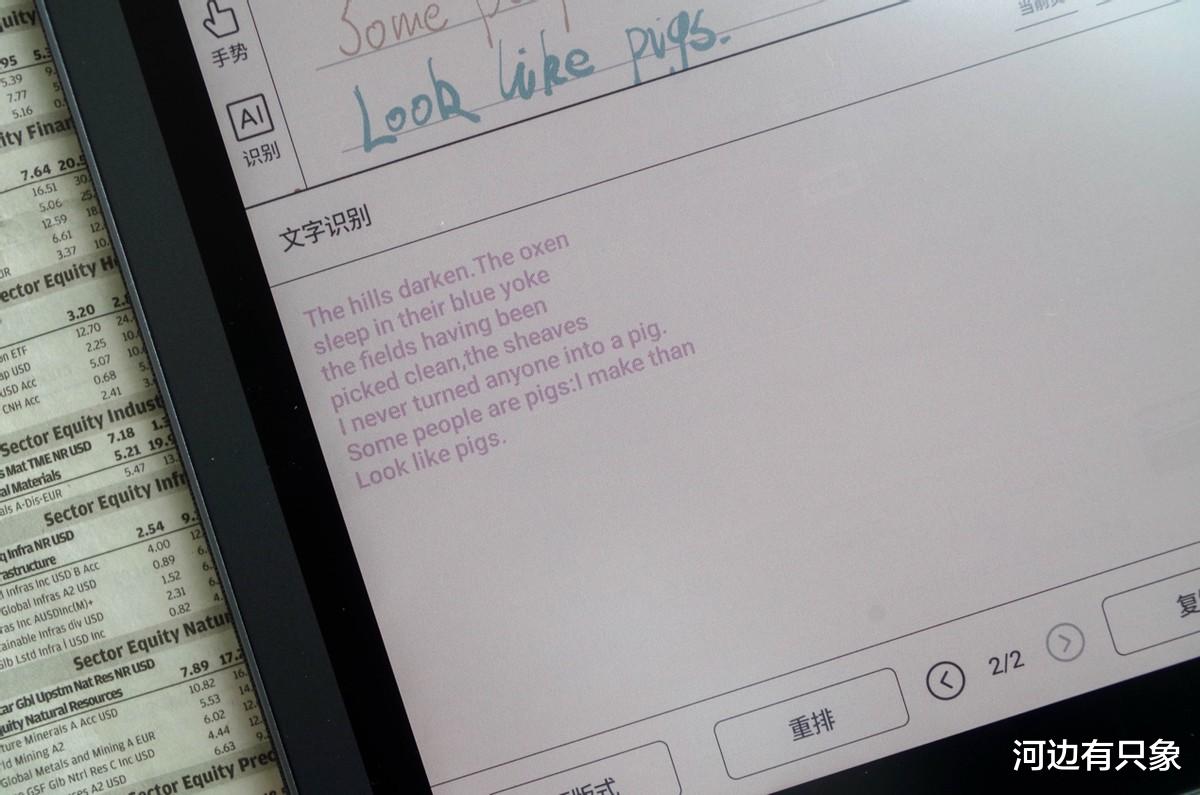 手势
Some
Look like pigs.
AI
识别
文字识别
The hills darken.The oxen
sleep in their blue yoke
the fields having been
picked clean,the sheaves
I never turned anyone into a pig.
Some people are pigs:I make than
Look like pigs.
重排
2/2
版式
河边有只象
7.64 20.5
16.51
5.06
12.59
6.61
3.37
3.20
12.70
2.25
5.07
0.68
2.41
Sector Equity Indust
s Mat TME NR USD 7.18
al Materials 5.21 19.9
als A-Dis-EUR 5.47
Sector Equity Infr
q Infra NR USD 2.54
rastructure 4.00
l Infras Inc USD B Acc 0.89
Global Infras A2 USD 1.52
ras Inc AUSDInc(M)+ 2.31
tainable Infras div USD 0.82
Glb Lstd Infra I USD Inc
Sector Equity Natur
car Gbl Upstm Nat Res NR USD 7.89 17.2
quity Natural Resources 10.82
ture Minerals A Acc USD 5.53
ld Mining A2 6.02
Global Metals and Mining A EUR 4.44
GSF Glb Ntrl Res C Inc USD 6.63
Sector Equity Prec